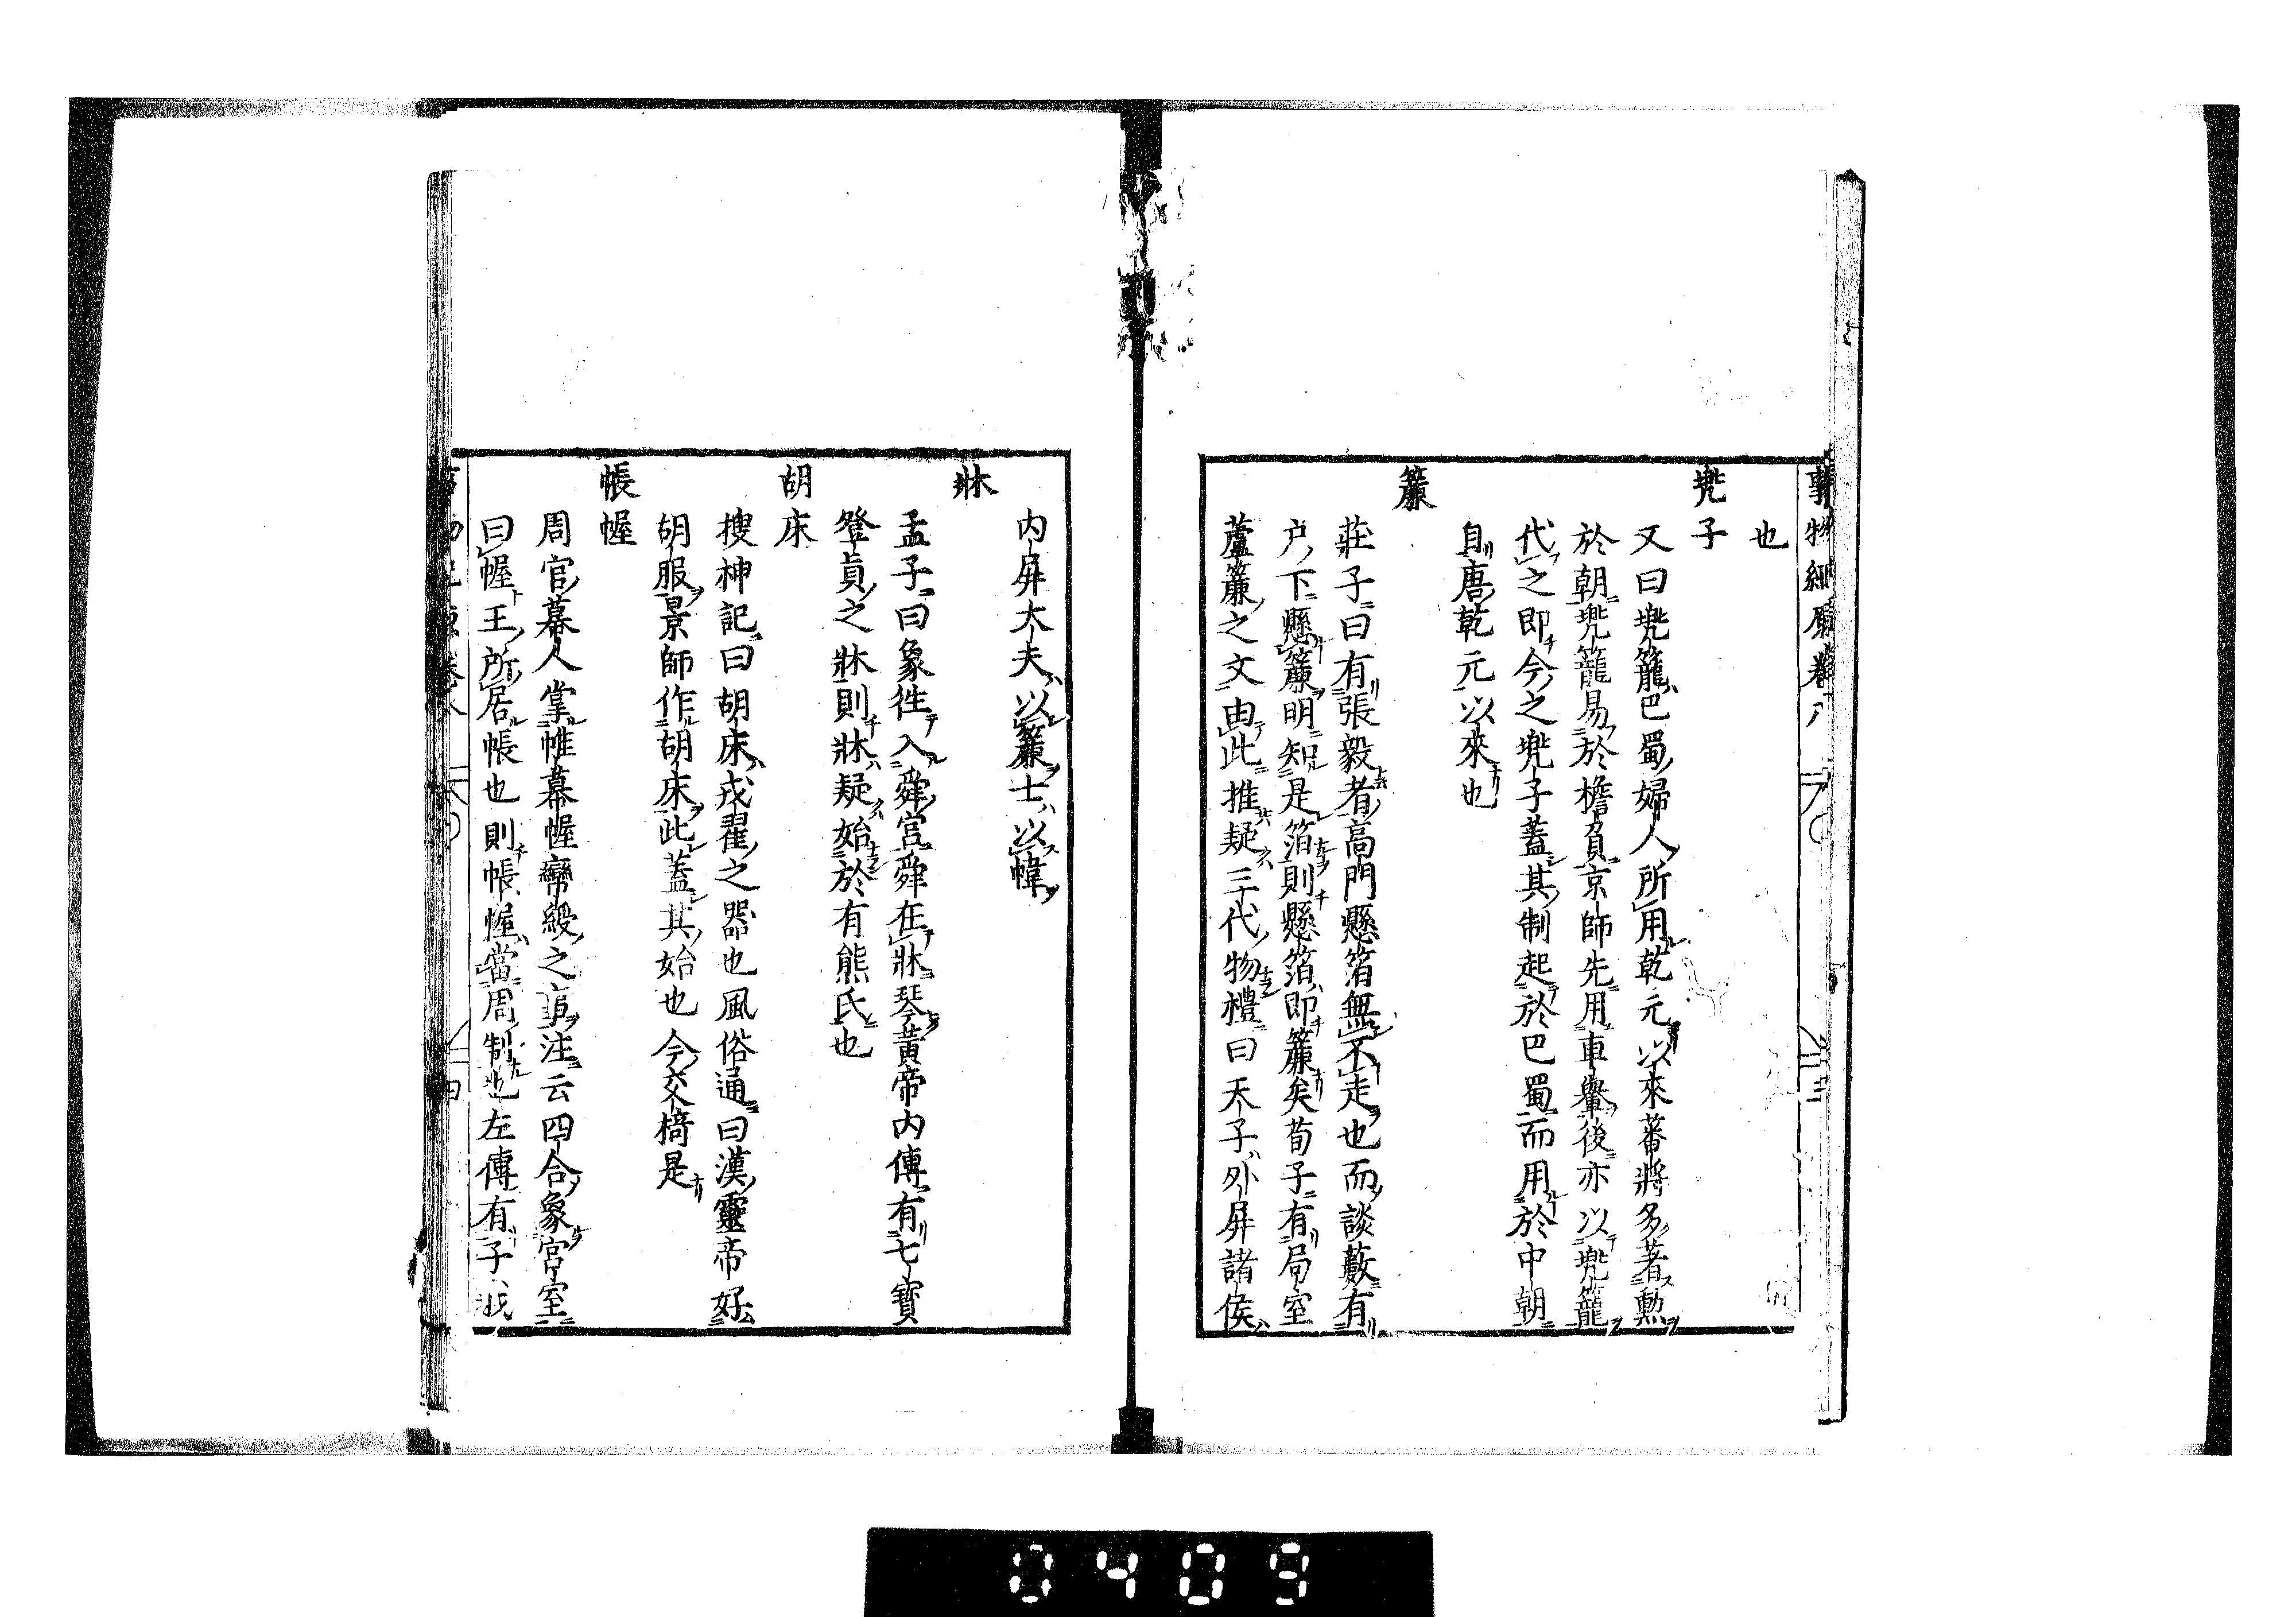 事物紀原卷八
也
兠子
又曰兠籠巴蜀婦人所用乾元以來蕃將多著勲
於朝兠籠易於檐負京師先用車轝後亦以兠籠
代之即今之兠子蓋其制起於巴蜀而用於中朝
自唐乾元以來也
簾
莊子曰有張毅者高門懸箔無不走也而談藪有
户下懸簾明知是箔則懸箔即簾矣荀子有局室
蘆簾之文由此推疑三代物禮曰天子外屏諸侯
内屏大夫以簾士以幃
牀
孟子曰象徃入舜宫舜在牀琴黄帝内傳有七寳
登真之牀則牀疑始於有熊氏也
胡床
搜神記曰胡床戎翟之器也風俗通曰漢靈帝好
胡服景師作胡床此蓋其始也今交椅是
帳幄
周官幕人掌帷幕幄帟綬之事注云四合象宫室
曰幄王所居帳也則帳幄當周制也左傳有子我
0409